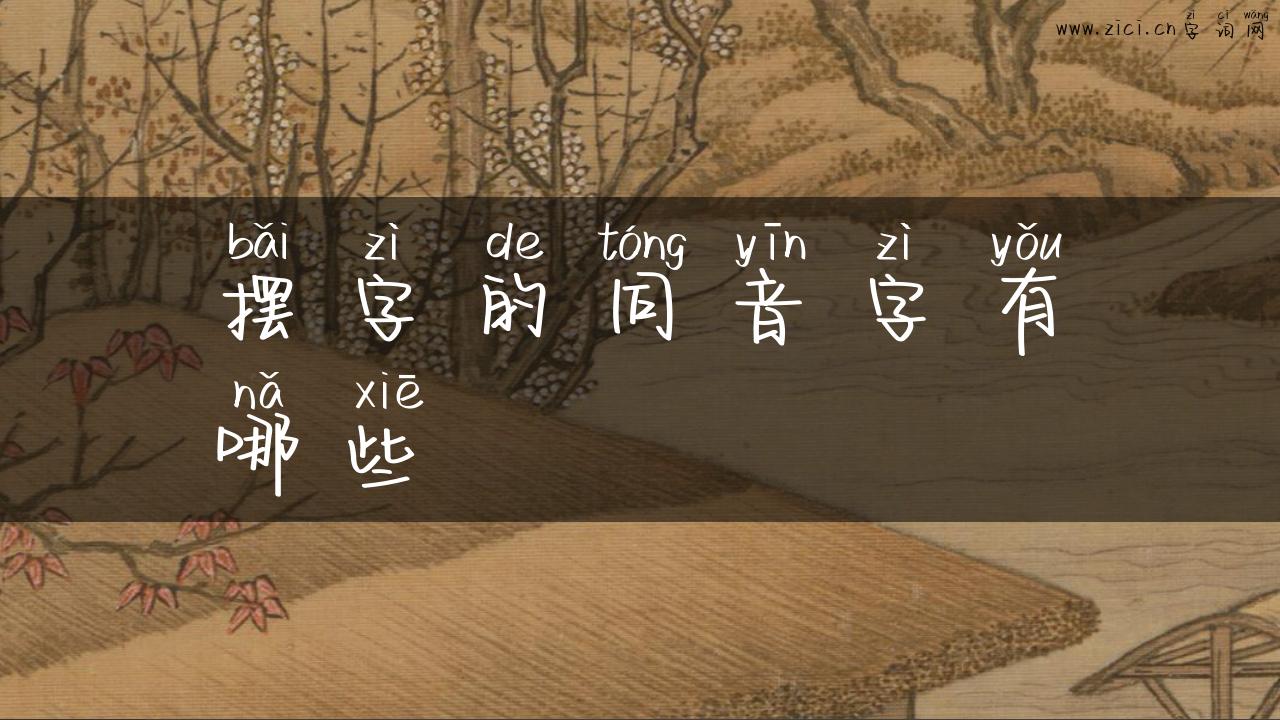 zì cí wǎng
www.zici.cn 字词网
bǎi zì de tóng yīn zì yǒu
摆字的同音字有
nǎ xiē
哪些